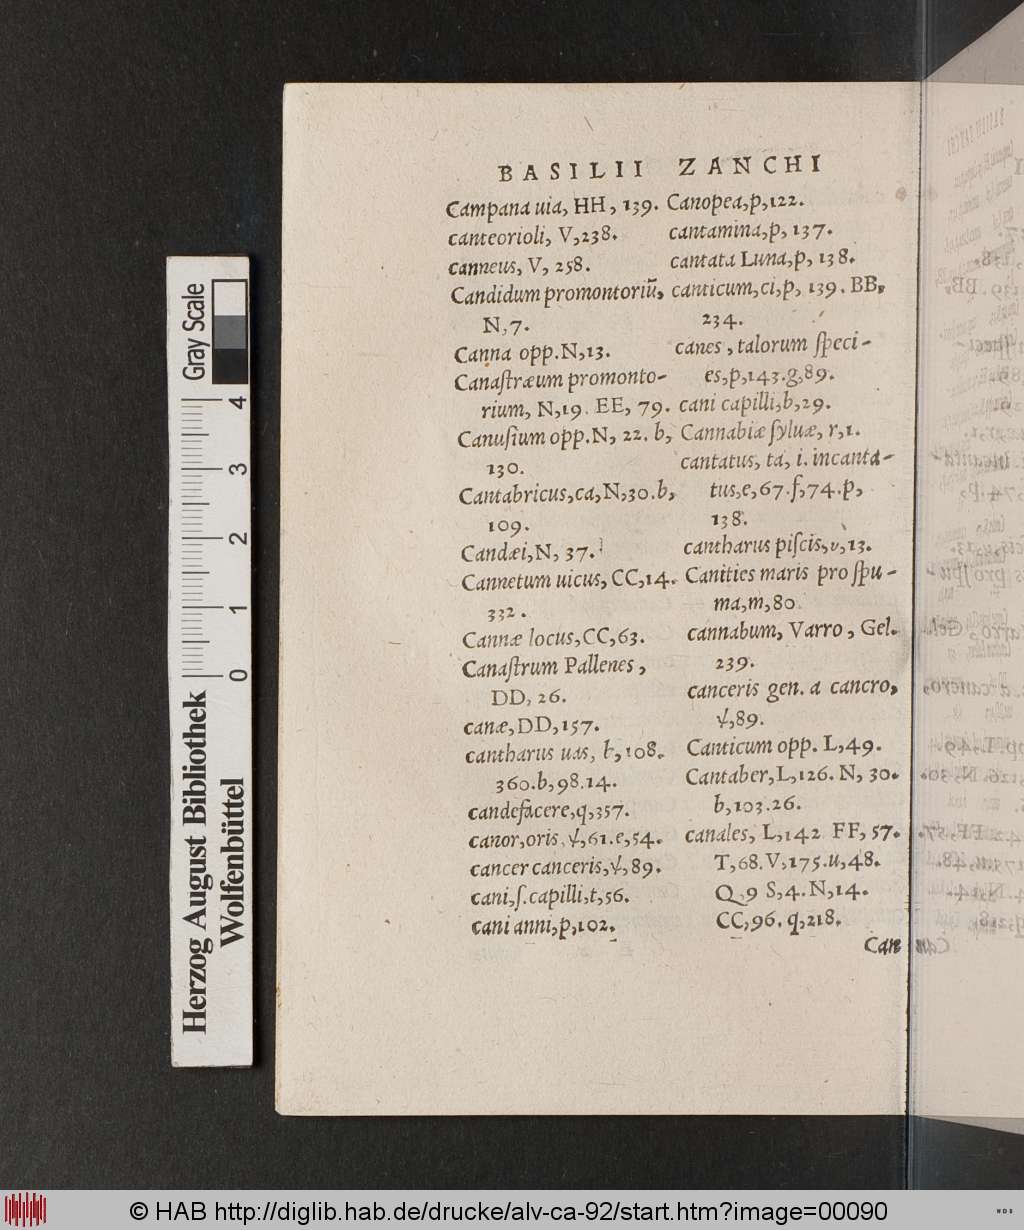 BASILII ZANCHI
Campana uia, HH, 139.
canteorioli, V,238.
canneus, V, 258.
Candidum promontoriū,
N,7.
Canna opp.N,13.
Canaſtræum promonto-
rium, N,19. EE, 79.
Canuſium opp.N, 22. b,
130.
Cantabricus,ca,N,30.b,
109.
Candæi,N, 37.
Cannetum uicus, CC,14.
332.
Cannæ locus,CC,63.
Canaſtrum Pallenes,
DD, 26.
canæ,DD,157.
cantharus uas, t,108.
360.b,98.14.
candefacere,q,357.
canor,oris,ψ,61.e,54.
cancer canceris,ψ,89.
cani,ſ.capilli,t,56.
cani anni,p,102.
Canopea,p,122.
cantamina,p,137.
cantata Luna,p, 138.
canticum,ci,p, 139. BB,
234.
canes, talorum ſpeci-
es,p,143.g,89.
cani capilli,b,29.
Cannabiæ ſyluæ, r,1.
cantatus, ta, i. incanta-
tus,e,67.f,74.p,
138.
cantharus piſcis,υ,13.
Canities maris pro ſpu-
ma,m,80
cannabum, Varro, Gel.
239.
canceris gen. a cancro,
ψ,89.
Canticum opp. L,49.
Cantaber,L,126. N, 30.
b,103.26.
canales, L,142 FF, 57.
T,68.V,175.u,48.
Q,9 S,4.N,14.
CC,96. q,218.
Can
Gray Scale
4
3
2
1
0
Herzog August Bibliothek
Wolfenbüttel
© HAB http://diglib.hab.de/drucke/alv-ca-92/start.htm?image=00090